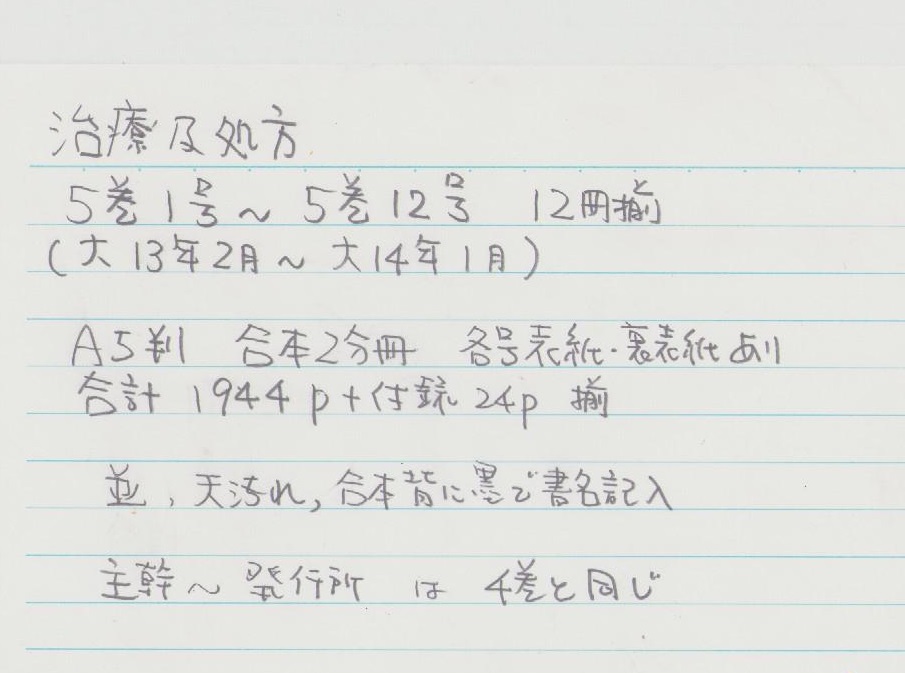 治療及処方
5巻1号～5巻12号 12冊揃
(大13年2月～大14年1月)
A5判 合本2分冊 各号表紙・裏表紙あり
合計 1944p+付録24p 揃
並,天汚れ,合本背に墨で書名記入
主幹～発行所 は 4巻と同じ